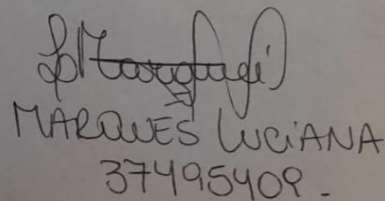 MARQUES LUCIANA
37495409.-